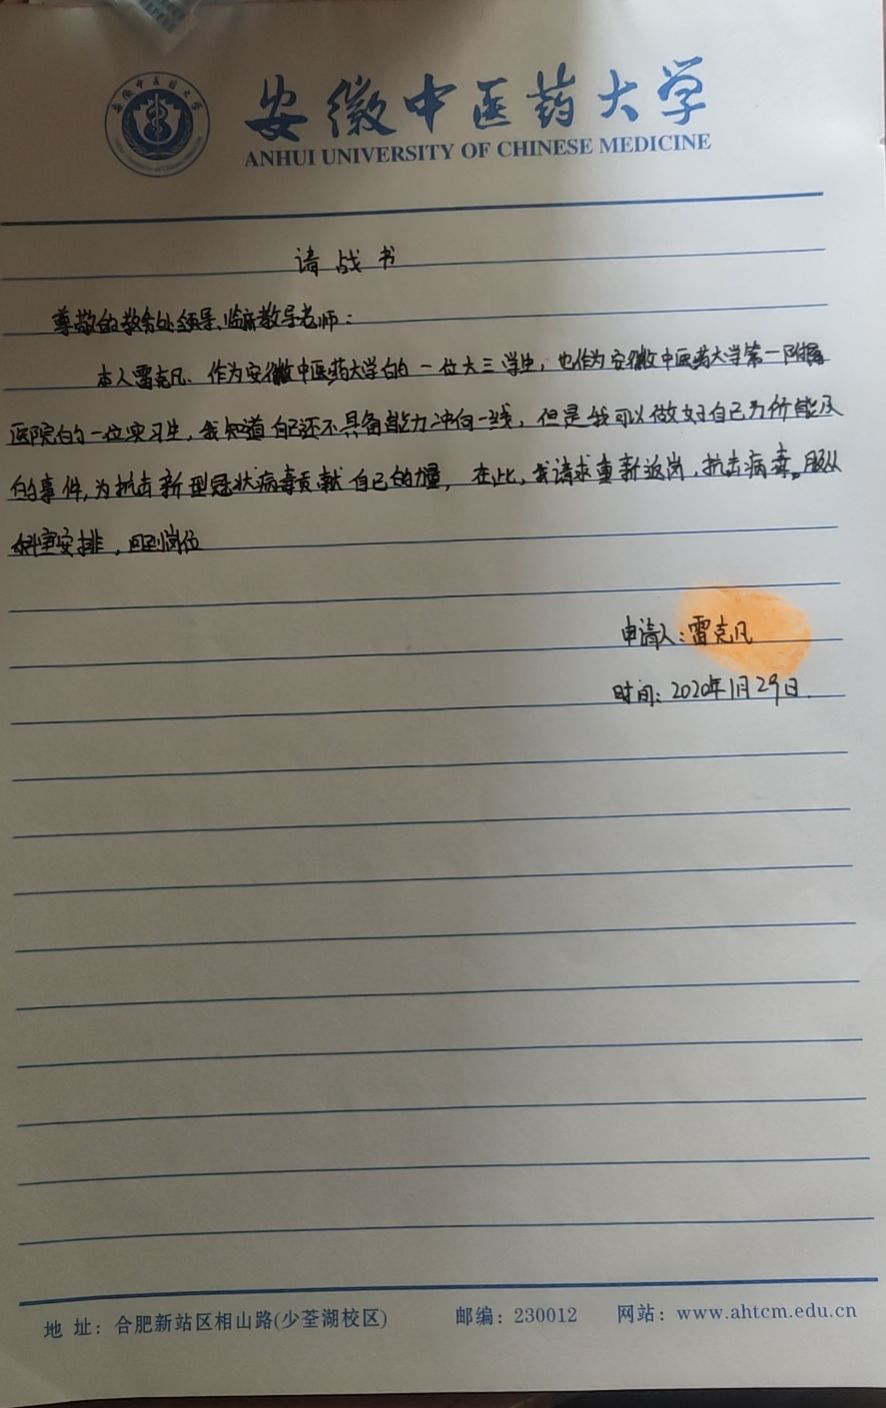 安徽中医药大学
ANHUI UNIVERSITY OF CHINESE MEDICINE
请战书
尊敬的教务处领导、临床教导老师：
本人雷克凡、作为安徽中医药大学的一位大三学生，也作为安徽中医药大学第一附属
医院的一位实习生，我知道自己还不具备能力冲向一线，但是我可以做好自己力所能及
的事件，为抗击新型冠状病毒贡献自己的力量，在此，我请求重新返岗，抗击病毒。服从
科室安排，回到岗位
申请人：雷克凡
时间：2020年1月29日
地 址：合肥新站区相山路(少荃湖校区) 邮编：230012 网站：www.ahtcm.edu.cn